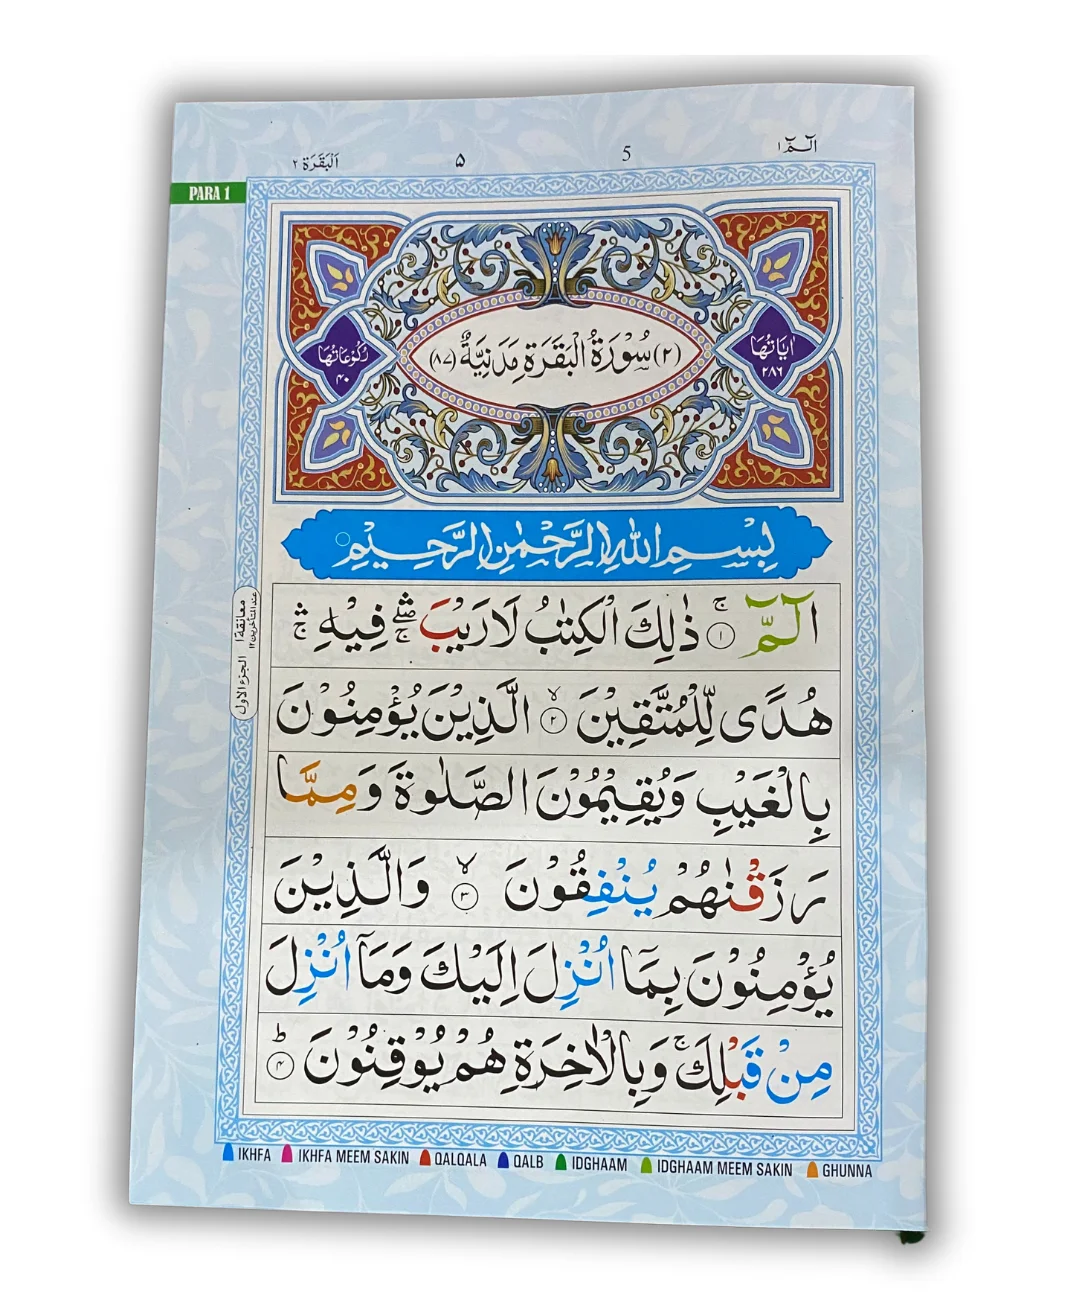 الٓمّٓ ۱
5
۵
اَلْبَقَرَة ۲
PARA 1
اٰيَاتُهَا ۲۸۶
(۲) سُوْرَةُ الْبَقَرَةِ مَدَنِيَّةٌ (۸۷)
رُكُوْعَاتُهَا ۴۰
بِسْمِ اللهِ الرَّحْمٰنِ الرَّحِيْمِ
الٓمّٓ ۚ ۝۱ ذٰلِكَ الْكِتٰبُ لَا رَيْبَ ۛۖ فِيْهِ ۛ
هُدًى لِّلْمُتَّقِيْنَ ۙ ۝۲ الَّذِيْنَ يُؤْمِنُوْنَ
بِالْغَيْبِ وَيُقِيْمُوْنَ الصَّلٰوةَ وَمِمَّا
رَزَقْنٰهُمْ يُنْفِقُوْنَ ۙ ۝۳ وَالَّذِيْنَ
يُؤْمِنُوْنَ بِمَآ اُنْزِلَ اِلَيْكَ وَمَآ اُنْزِلَ
مِنْ قَبْلِكَ ۚ وَبِالْاٰخِرَةِ هُمْ يُوْقِنُوْنَ ؕ ۝۴
معانقة ۱
عند المتأخرين ۱۲
الجزء الاول
IKHFA IKHFA MEEM SAKIN QALQALA QALB IDGHAAM IDGHAAM MEEM SAKIN GHUNNA